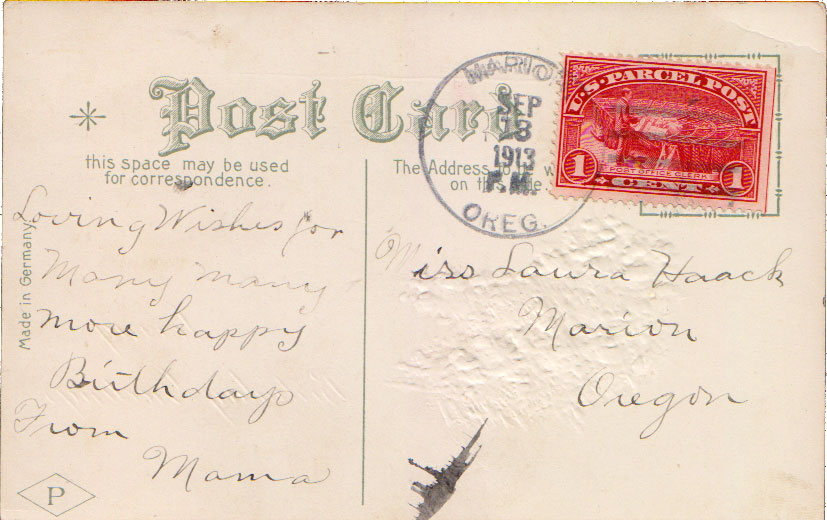 Post Card
this space may be used
for correspondence.
The Address to be w
on this side.
MARION
SEP
13
1913
P.M.
OREG.
U.S. PARCEL POST
1
POST OFFICE CLERK
1
CENT
Made in Germany
Loving Wishes for
Many many
more happy
Birthdays
From
Mama
Miss Laura Haack
Marion
Oregon
P